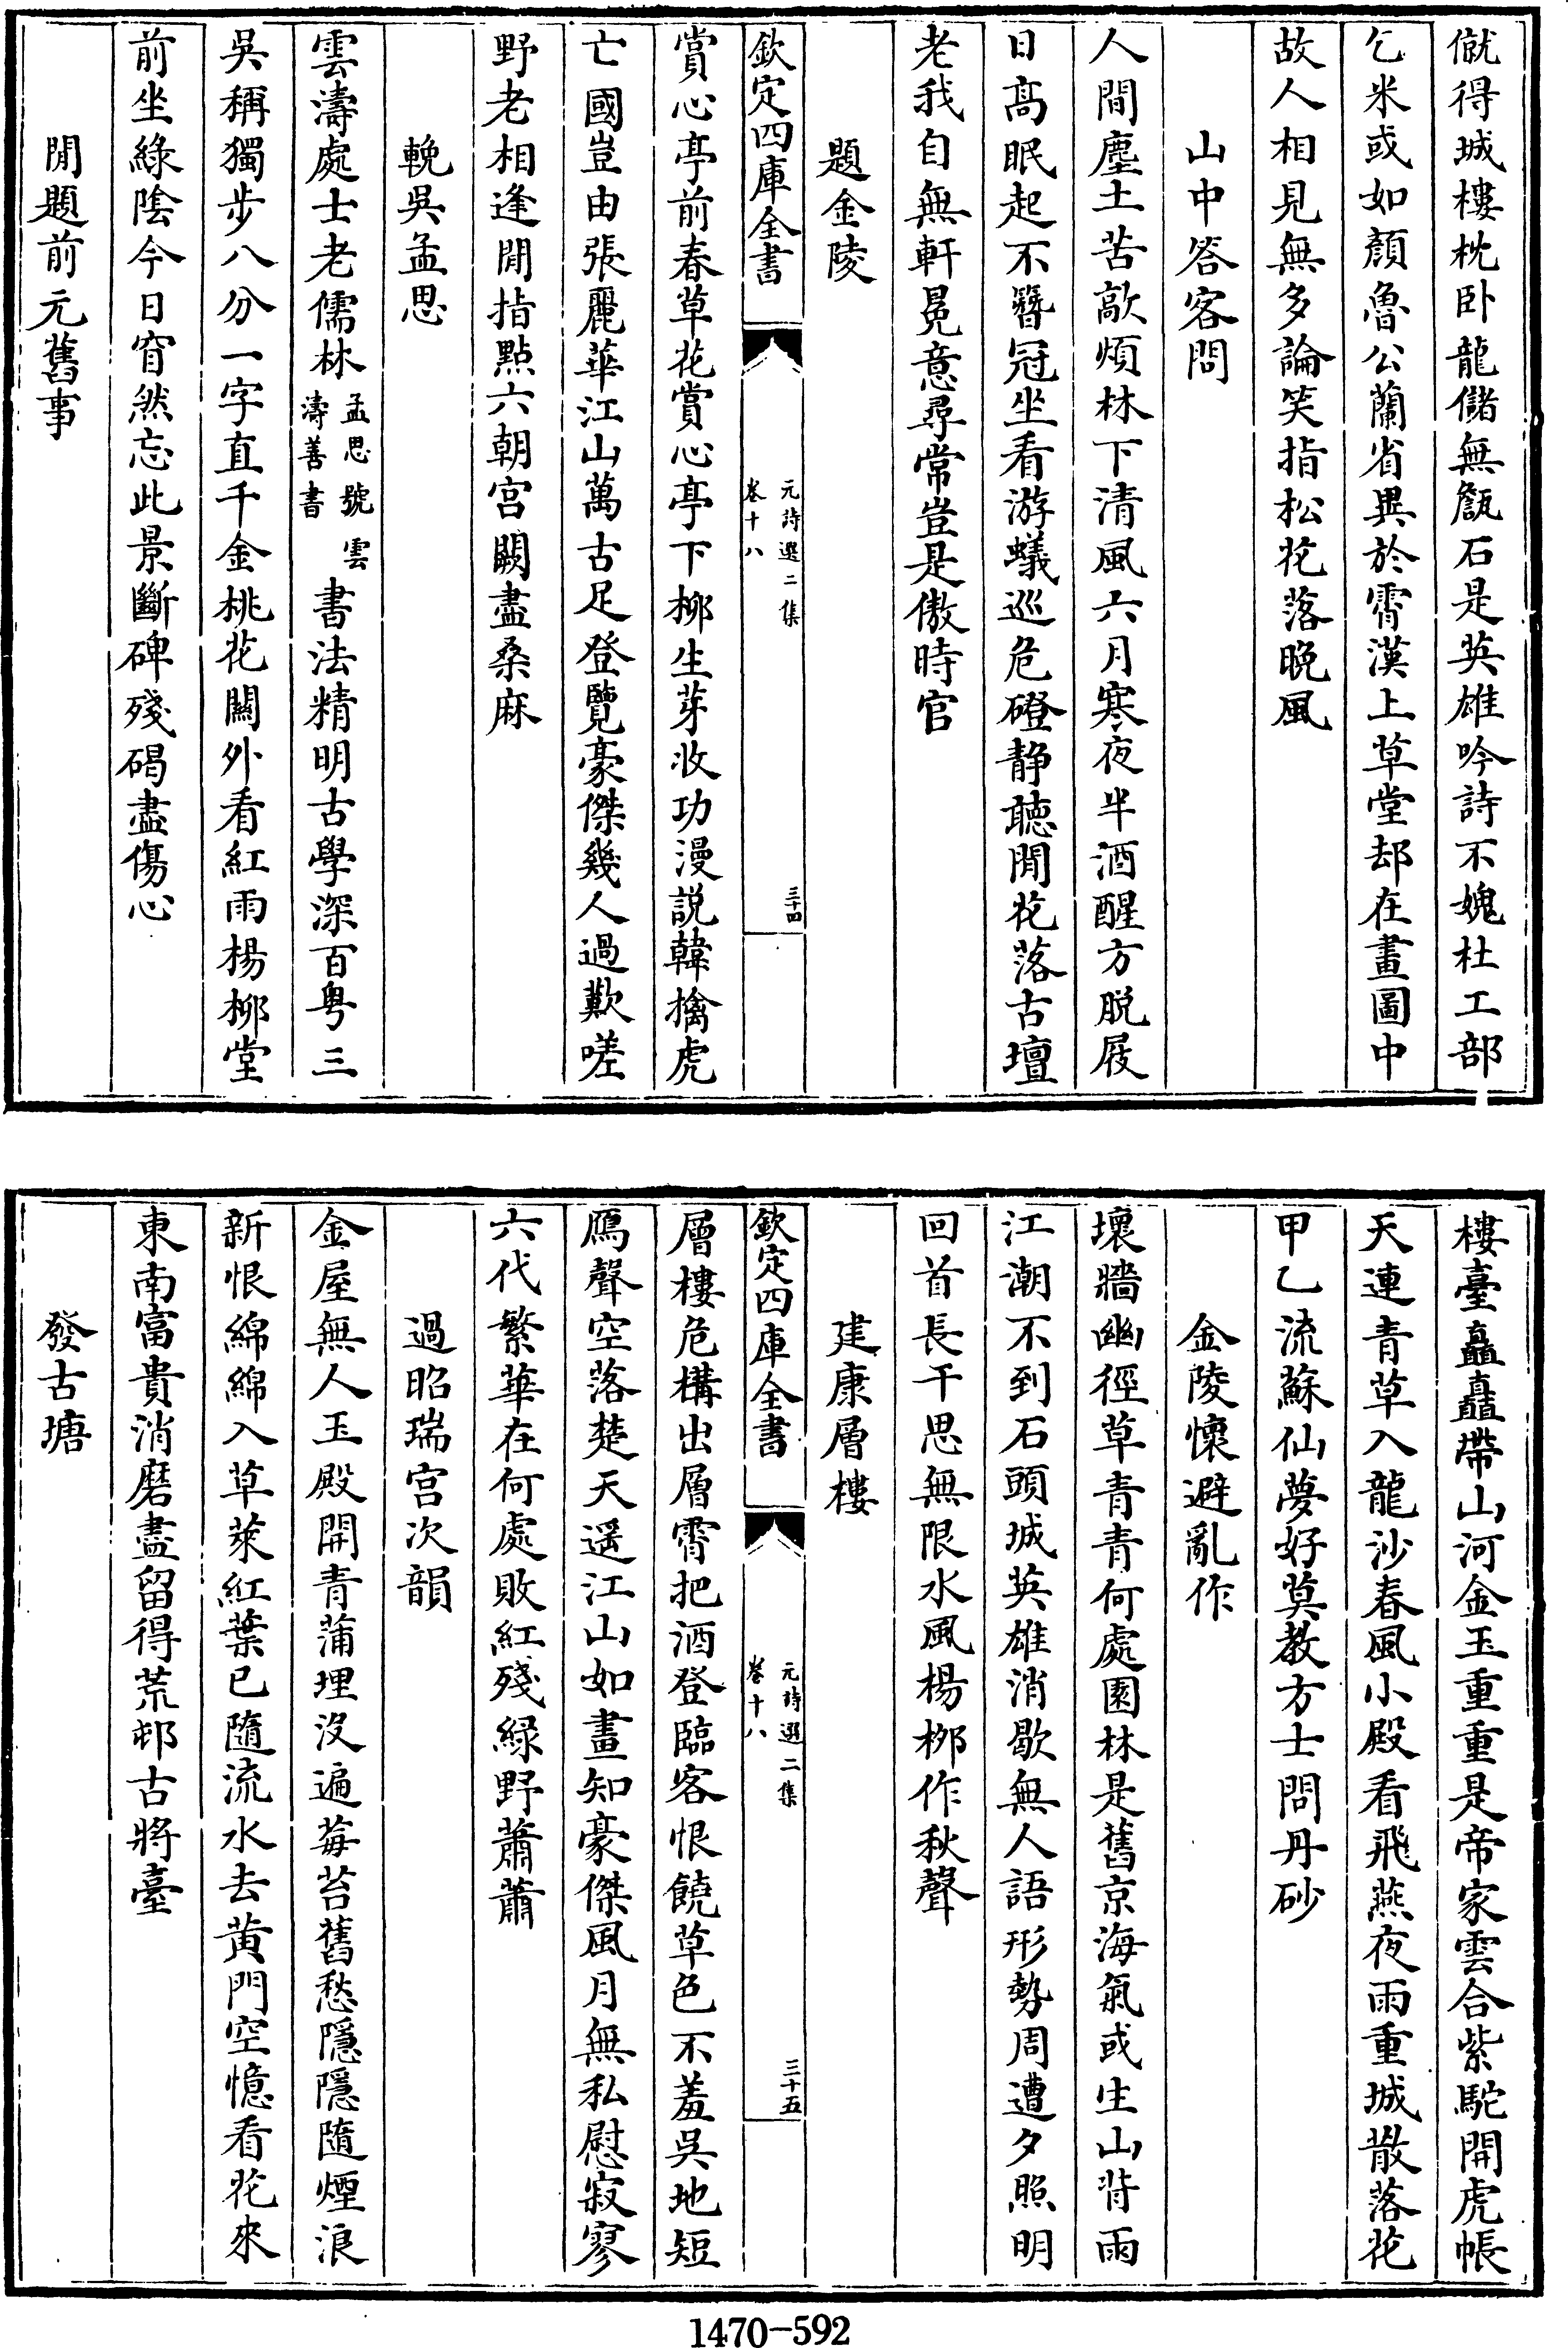 僦得城樓枕卧龍儲無甔石是英雄吟詩不媿杜工部
乞米或如顔魯公蘭省異於霄漢上草堂却在畫圖中
故人相見無多論笑指松花落晚風
山中答客問
人間塵土苦歊煩林下清風六月寒夜半酒醒方脱屐
日髙眠起不簪冠坐看游蟻巡危磴静聽閒花落古壇
老我自無軒冕意尋常豈是傲時官
題金陵
欽定四庫全書
元詩選二集
卷十八
三十四
賞心亭前春草花賞心亭下栁生芽收功漫説韓擒虎
亡國豈由張麗華江山萬古足登覽豪傑幾人過歎嗟
野老相逢閒指點六朝宫闕盡桑麻
輓吳孟思
雲濤處士老儒林孟思號雲濤善書書法精明古學深百粤三
吳稱獨步八分一字直千金桃花關外看紅雨楊栁堂
前坐綠隂今日窅然忘此景斷碑殘碣盡傷心
閒題前元舊事
樓臺矗矗帶山河金玉重重是帝家雲合紫駝開虎帳
天連青草入龍沙春風小殿看飛燕夜雨重城散落花
甲乙流蘇仙夢好莫教方士問丹砂
金陵懷避亂作
壞牆幽徑草青青何處園林是舊京海氣或生山背雨
江潮不到石頭城英雄消歇無人語形勢周遭夕照明
回首長干思無限水風楊栁作秋聲
建康層樓
欽定四庫全書
元詩選二集
卷十八
三十五
層樓危構出層霄把酒登臨客恨饒草色不羞吳地短
鴈聲空落楚天遥江山如畫知豪傑風月無私慰寂寥
六代繁華在何處敗紅殘緑野蕭蕭
過昭瑞宫次韻
金屋無人玉殿開青蒲埋没遍莓苔舊愁隱隱隨煙浪
新恨綿綿入草萊紅葉已隨流水去黄門空憶看花來
東南富貴消磨盡留得荒邨古將臺
發古塘
1470-592